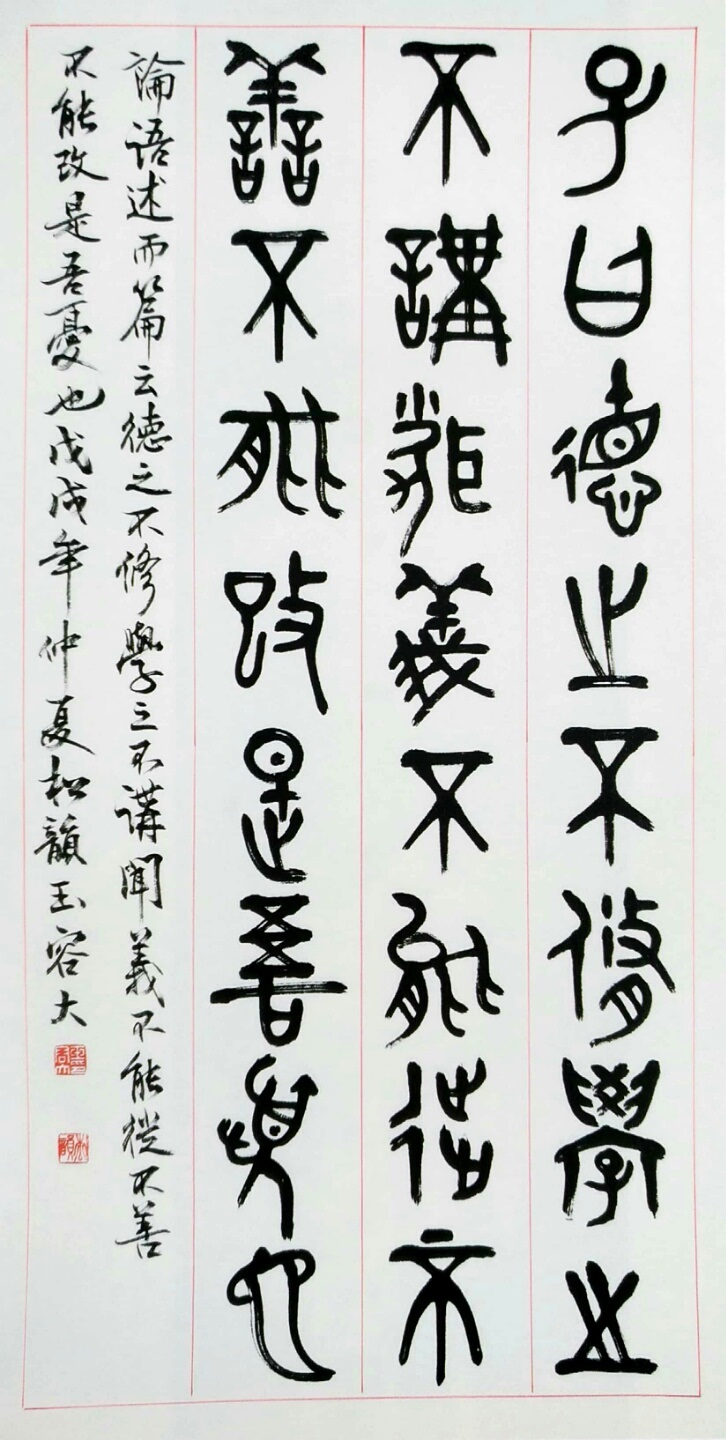 子曰德之不脩學之
不講聞義不能徙不
善不能改是吾憂也
論語述而篇云德之不修學之不講聞義不能從不善
不能改是吾憂也戊戌年仲夏松韻玉容大